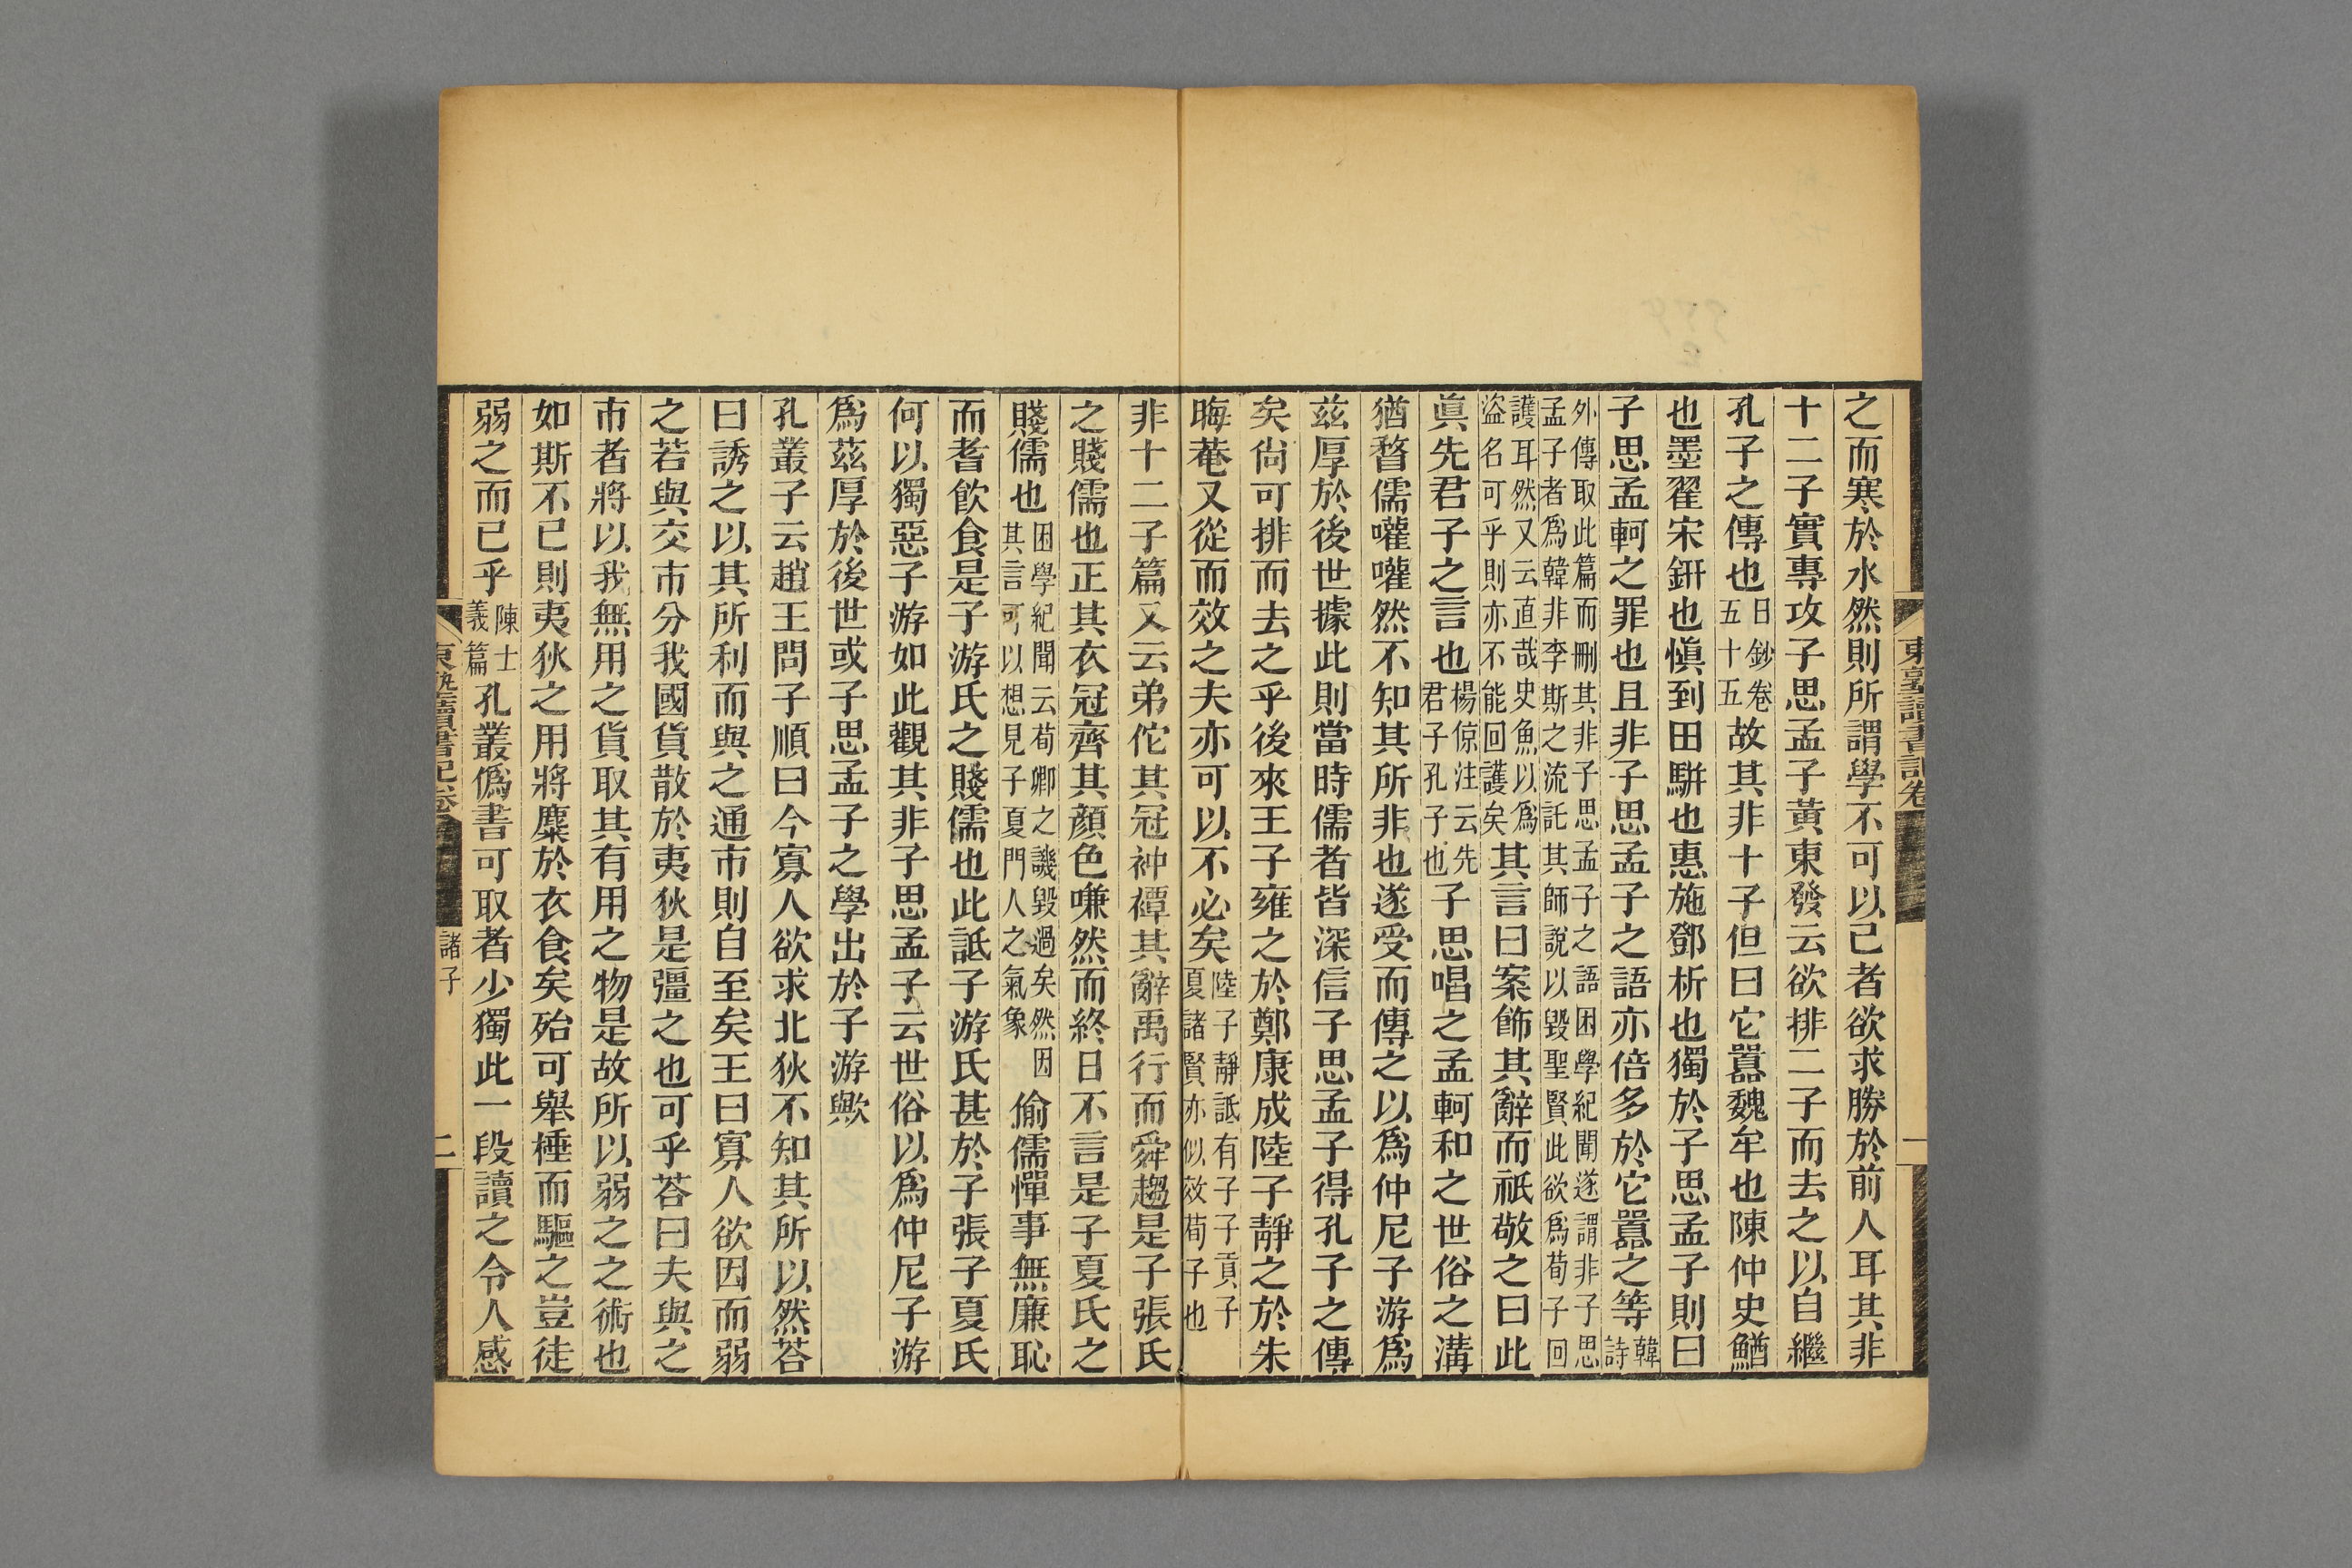 東塾讀書記卷
一
之而寒於水然則所謂學不可以已者欲求勝於前人耳其非
十二子實專攻子思孟子黃東發云欲排二子而去之以自繼
孔子之傳也日鈔卷五十五故其非十子但曰它囂魏牟也陳仲史鰌
也墨翟宋鈃也愼到田駢也惠施鄧析也獨於子思孟子則曰
子思孟軻之罪也且非子思孟子之語亦倍多於它囂之等韓詩
外傳取此篇而刪其非子思孟子之語困學紀聞遂謂非子思
孟子者爲韓非李斯之流託其師說以毀聖賢此欲爲荀子回
護耳然又云直哉史魚以爲盜名可乎則亦不能回護矣其言曰案飾其辭而祇敬之曰此
眞先君子之言也楊倞注云先君子孔子也子思唱之孟軻和之世俗之溝
猶瞀儒嚾嚾然不知其所非也遂受而傳之以爲仲尼子游爲
兹厚於後世據此則當時儒者皆深信子思孟子得孔子之傳
矣尙可排而去之乎後來王子雍之於鄭康成陸子靜之於朱
晦菴又從而效之夫亦可以不必矣陸子靜詆有子子貢子夏諸賢亦似效荀子也
非十二子篇又云弟佗其冠衶禫其辭禹行而舜趨是子張氏
之賤儒也正其衣冠齊其顏色嗛然而終日不言是子夏氏之
賤儒也困學紀聞云荀卿之譏毀過矣然因其言可以想見子夏門人之氣象偷儒憚事無廉恥
而耆飮食是子游氏之賤儒也此詆子游氏甚於子張子夏氏
何以獨惡子游如此觀其非子思孟子云世俗以爲仲尼子游
爲兹厚於後世或子思孟子之學出於子游歟
孔叢子云趙王問子順曰今寡人欲求北狄不知其所以然荅
曰誘之以其所利而與之通市則自至矣王曰寡人欲因而弱
之若與交市分我國貨散於夷狄是彊之也可乎荅曰夫與之
市者將以我無用之貨取其有用之物是故所以弱之之術也
如斯不已則夷狄之用將麋於衣食矣殆可舉棰而驅之豈徒
弱之而已乎陳士義篇孔叢僞書可取者少獨此一段讀之令人感
東塾讀書記卷
諸子
二